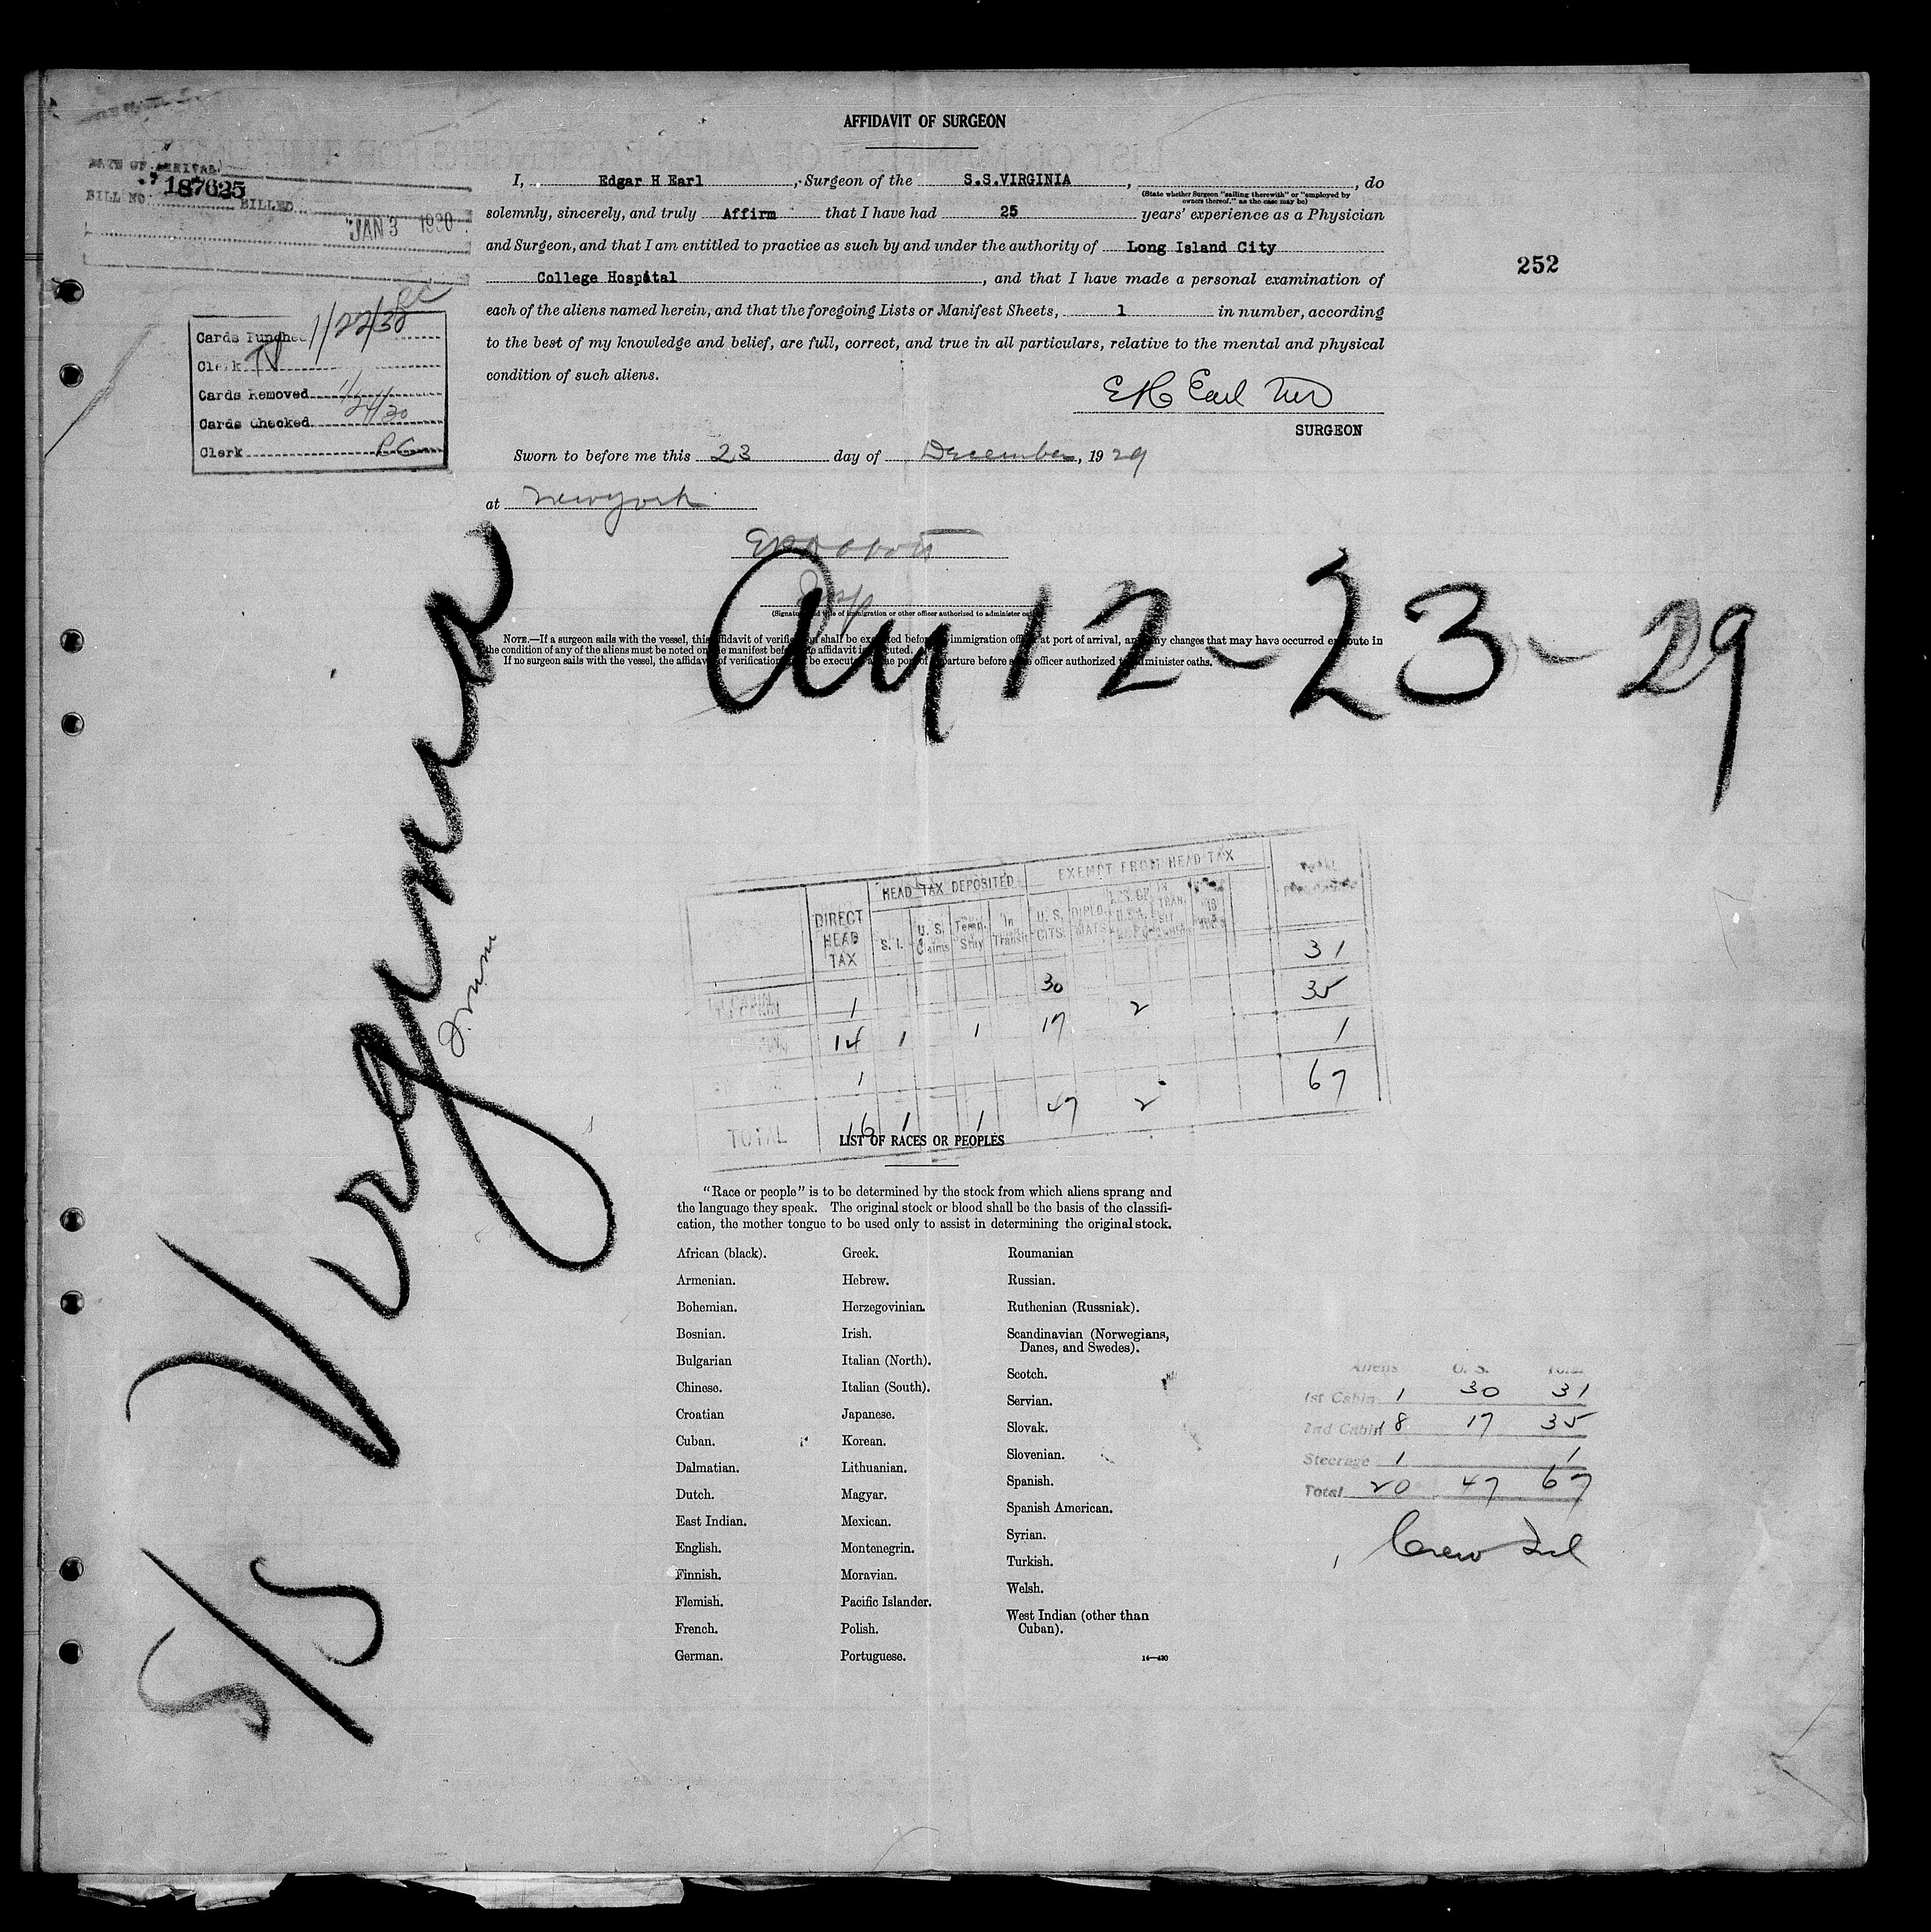 AFFIDAVIT OF SURGEON
DATE OF ARRIVAL
187625
BILL NO. BILLED
JAN 3 1930
I, Edgar H Earl, Surgeon of the S.S.VIRGINIA, , do
(State whether Surgeon "sailing therewith" or "employed by
owners thereof," as the case may be)
solemnly, sincerely, and truly Affirm that I have had 25 years' experience as a Physician
and Surgeon, and that I am entitled to practice as such by and under the authority of Long Island City
College Hospital, and that I have made a personal examination of
each of the aliens named herein, and that the foregoing Lists or Manifest Sheets, 1 in number, according
to the best of my knowledge and belief, are full, correct, and true in all particulars, relative to the mental and physical
condition of such aliens.
252
Cards Punched 1/22/30
Clerk
Cards Removed
Cards Checked 1/24/30
Clerk
E H Earl MD
SURGEON
Sworn to before me this 23 day of December, 1929
at New york
Insp
(Signature and title of immigration or other officer authorized to administer oaths)
NOTE.—If a surgeon sails with the vessel, this affidavit of verification shall be executed before an immigration officer at port of arrival, and any changes that may have occurred en route in
the condition of any of the aliens must be noted on the manifest before the affidavit is executed.
If no surgeon sails with the vessel, the affidavit of verification must be executed at the port of departure before some officer authorized to administer oaths.
Arr 12-23-29
S/S Virginia
DIRECT HEAD TAX
HEAD TAX DEPOSITED
EXEMPT FROM HEAD TAX
S. I. U. S. Claims Temp. Stay In Transit U. S. CITS. DIPLOMATS
1 30 31
14 1 1 17 2 35
1 1
TOTAL 16 1 1 47 2 67
LIST OF RACES OR PEOPLES
"Race or people" is to be determined by the stock from which aliens sprang and
the language they speak. The original stock or blood shall be the basis of the classifi-
cation, the mother tongue to be used only to assist in determining the original stock.
African (black).
Armenian.
Bohemian.
Bosnian.
Bulgarian
Chinese.
Croatian
Cuban.
Dalmatian.
Dutch.
East Indian.
English.
Finnish.
Flemish.
French.
German.
Greek.
Hebrew.
Herzegovinian.
Irish.
Italian (North).
Italian (South).
Japanese.
Korean.
Lithuanian.
Magyar.
Mexican.
Montenegrin.
Moravian.
Pacific Islander.
Polish.
Portuguese.
Roumanian
Russian.
Ruthenian (Russniak).
Scandinavian (Norwegians,
Danes, and Swedes).
Scotch.
Servian.
Slovak.
Slovenian.
Spanish.
Spanish American.
Syrian.
Turkish.
Welsh.
West Indian (other than
Cuban).
14—430
Aliens U. S. Total
1st Cabin 1 30 31
2nd Cabin 18 17 35
Steerage 1 1
Total 20 47 67
Crew